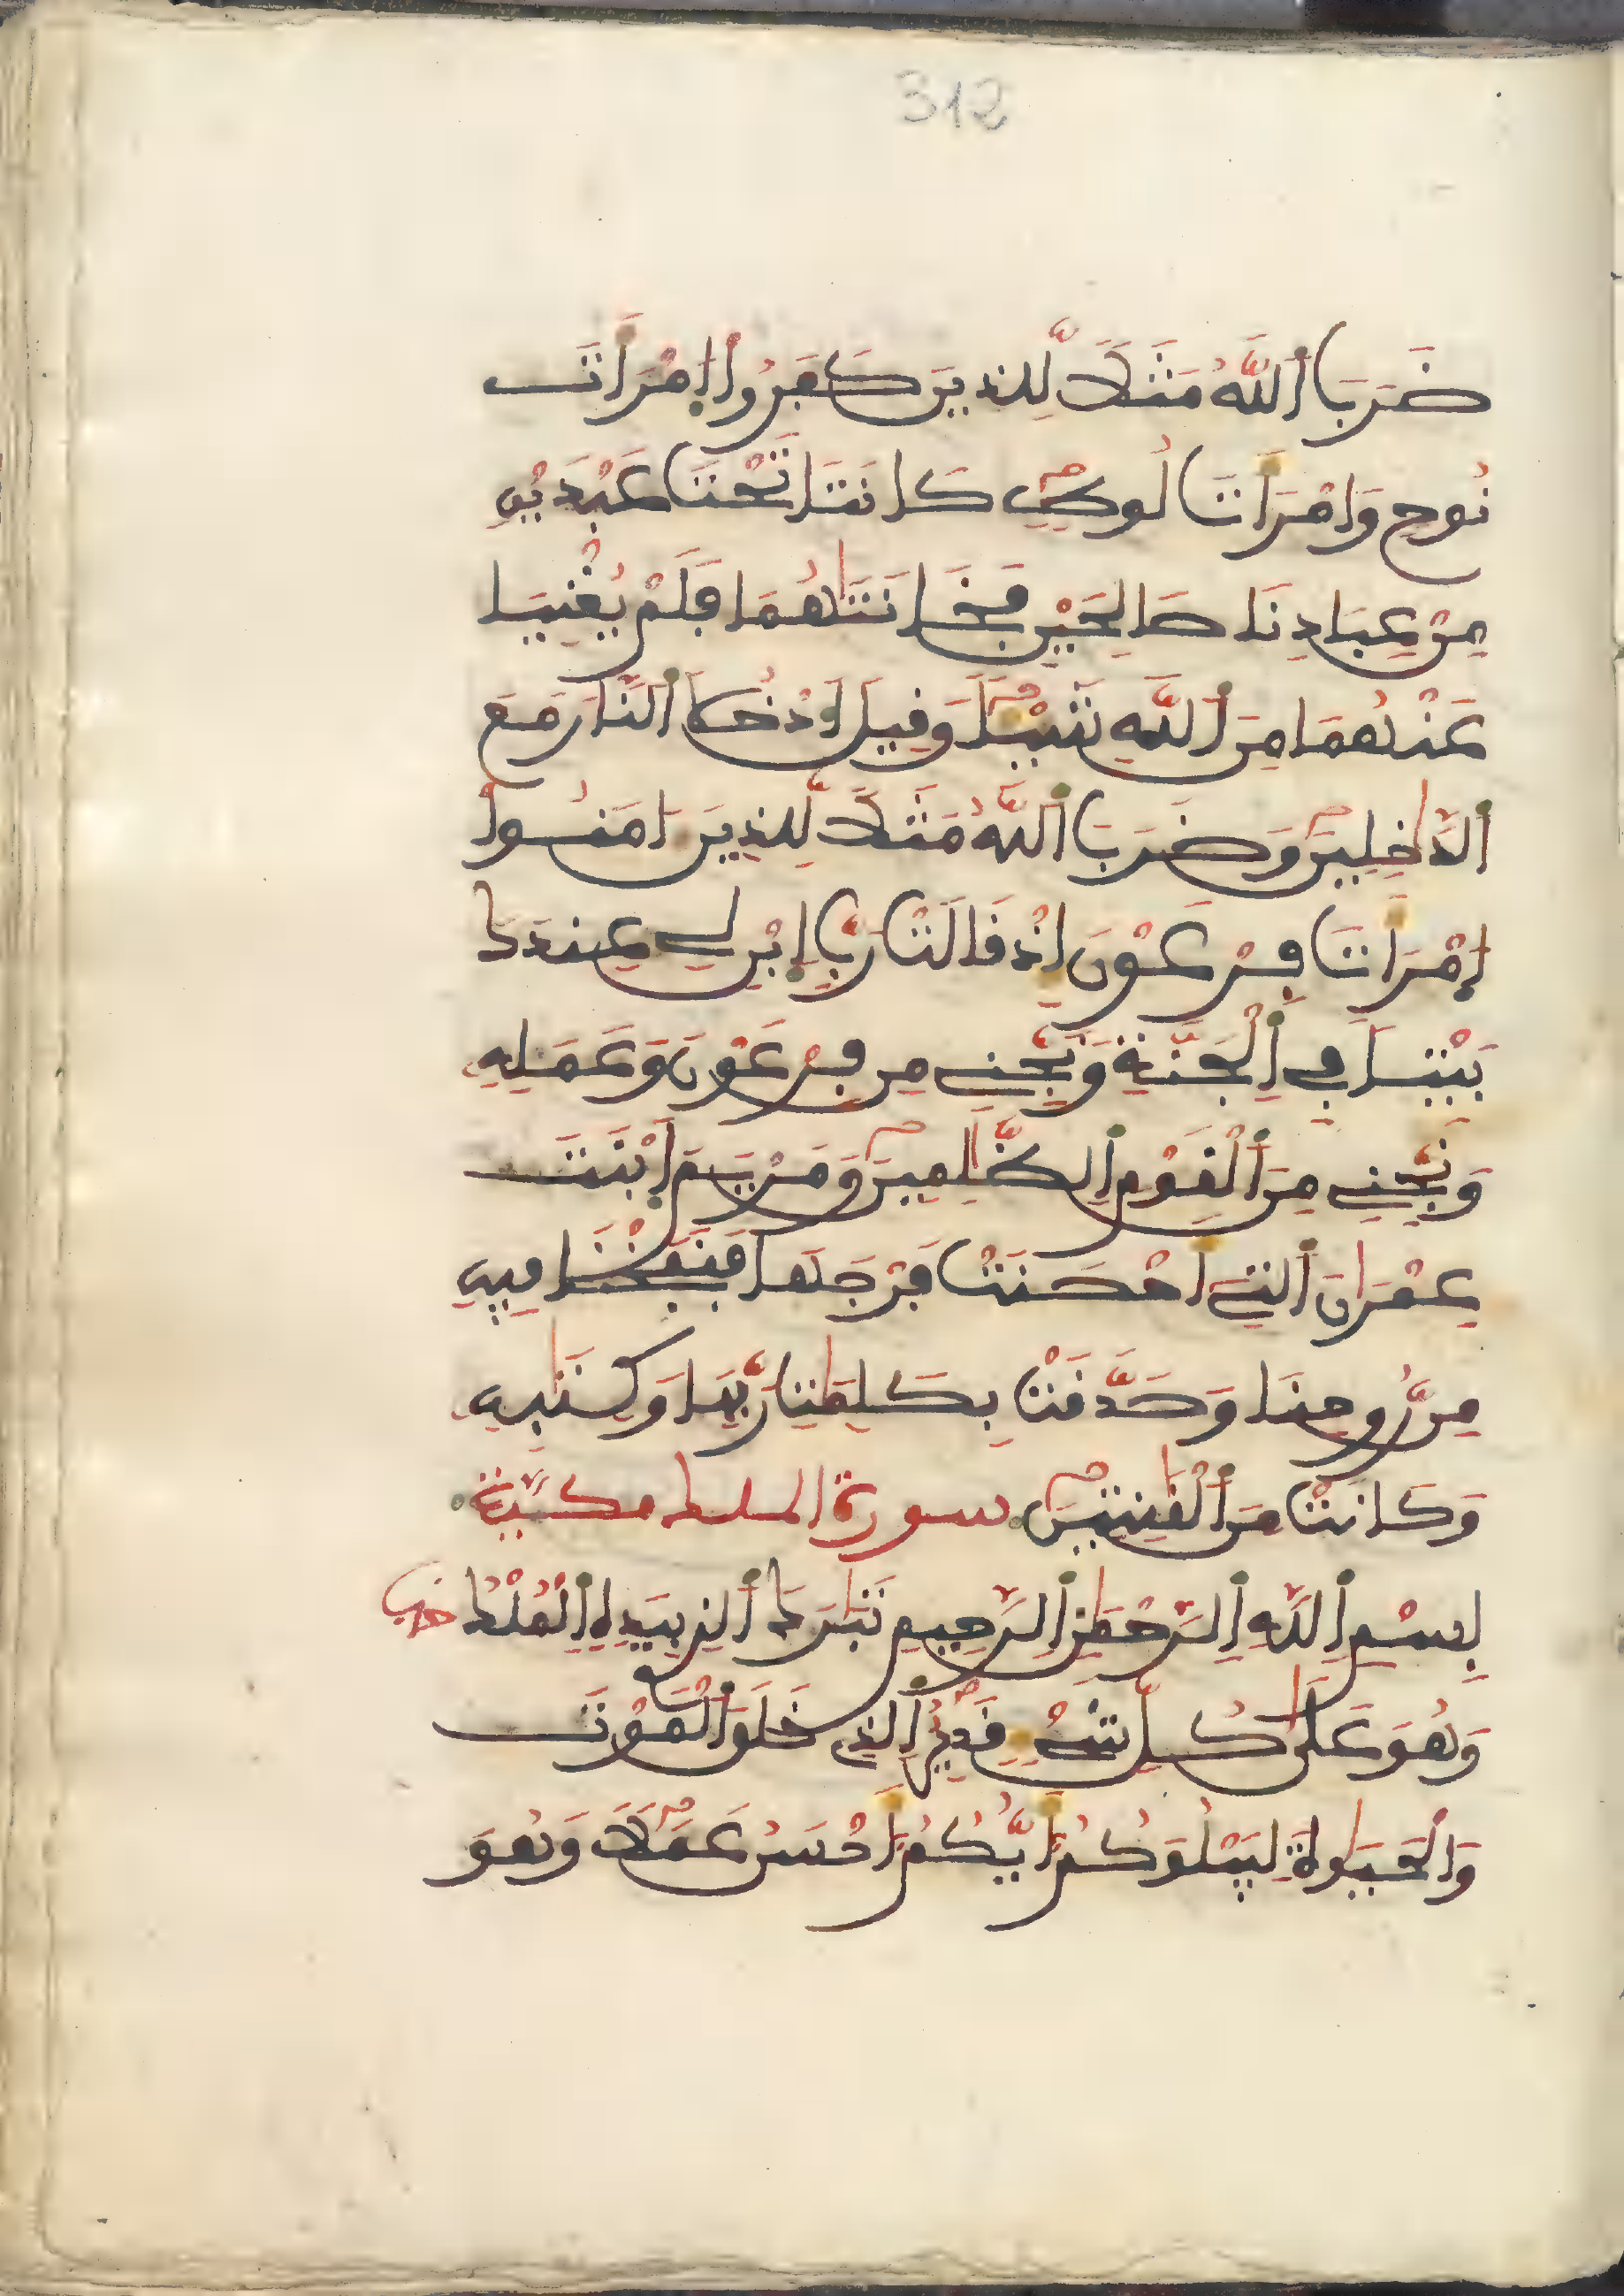 312
ضَرَبَ اَللَّهُ مَثَلاً لِّلذِينَ كَفَرُوا اِمْرَأَتَ
نُوحٍ وَامْرَأَتَ لُوطٍ كَانَتَا تَحْتَ عَبْدَيْنِ
مِنْ عِبَادِنَا صَالِحَيْنِ فَخَانَتَاهُمَا فَلَمْ يُغْنِيَا
عَنْهُمَا مِنَ اَللَّهِ شَيْئاً وَقِيلَ اَدْخُلاَ اَلنَّارَ مَعَ
اَلدَّاخِلِينَ وَضَرَبَ اَللَّهُ مَثَلاً لِّلذِينَ ءَامَنُوا
اِمْرَأَتَ فِرْعَوْنَ إِذْ قَالَتْ رَبِّ اِبْنِ لِي عِندَكَ
بَيْتاً فِي اِلْجَنَّةِ وَنَجِّنِي مِن فِرْعَوْنَ وَعَمَلِهِ
وَنَجِّنِي مِنَ اَلْقَوْمِ اِلظَّٰلِمِينَ وَمَرْيَمَ اَبْنَتَ
عِمْرَٰنَ اَلتِي أَحْصَنَتْ فَرْجَهَا فَنَفَخْنَا فِيهِ
مِن رُّوحِنَا وَصَدَّقَتْ بِكَلِمَٰتِ رَبِّهَا وَكِتَٰبِهِ
وَكَانَتْ مِنَ اَلْقَٰنِتِينَ سورة الملك مكية
بِسْمِ اِللَّهِ اِلرَّحْمَٰنِ اِلرَّحِيمِ تَبَٰرَكَ اَلذِي بِيَدِهِ اِلْمُلْكُ
وَهُوَ عَلَىٰ كُلِّ شَيْءٍ قَدِيرٌ اِلذِي خَلَقَ اَلْمَوْتَ
وَالْحَيَوٰةَ لِيَبْلُوَكُمْ أَيُّكُمْ أَحْسَنُ عَمَلاً وَهُوَ